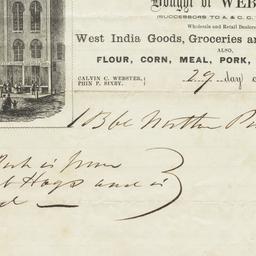 Bought of WEB
(SUCCESSORS TO A. & C. C.
Wholesale and Retail Dealer
West India Goods, Groceries an
ALSO,
FLOUR, CORN, MEAL, PORK,
CALVIN C. WEBSTER,
PHIN P. SIXBY.
29 day
1 Bbl
Pork is from
Hogs and is